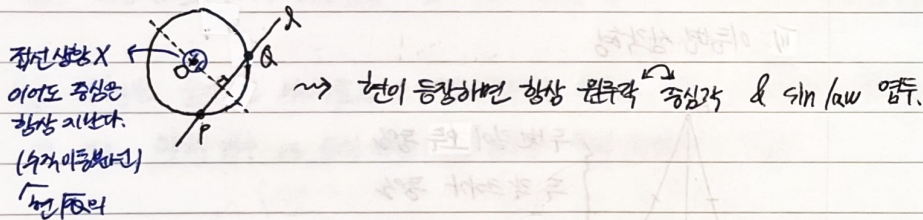 l
Q
O
P
접선상황 X
이어도 중심은
항상 지난다.
(수직이등분선)
현 PQ의
~> 현이 등장하면 항상 원주각 중심각 & sin law 염두.